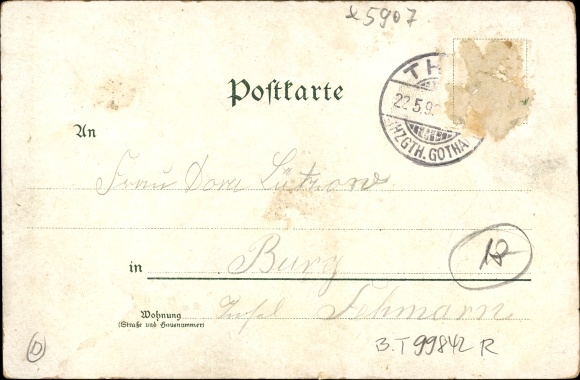 x5907
TH
22.5.9
HZGTH. GOTHA
Postkarte
An
Frau Dora Lützow
in Burg
Wohnung
(Straße und Hausnummer)
Insel Fehmarn
18
D
B.T 99842 R